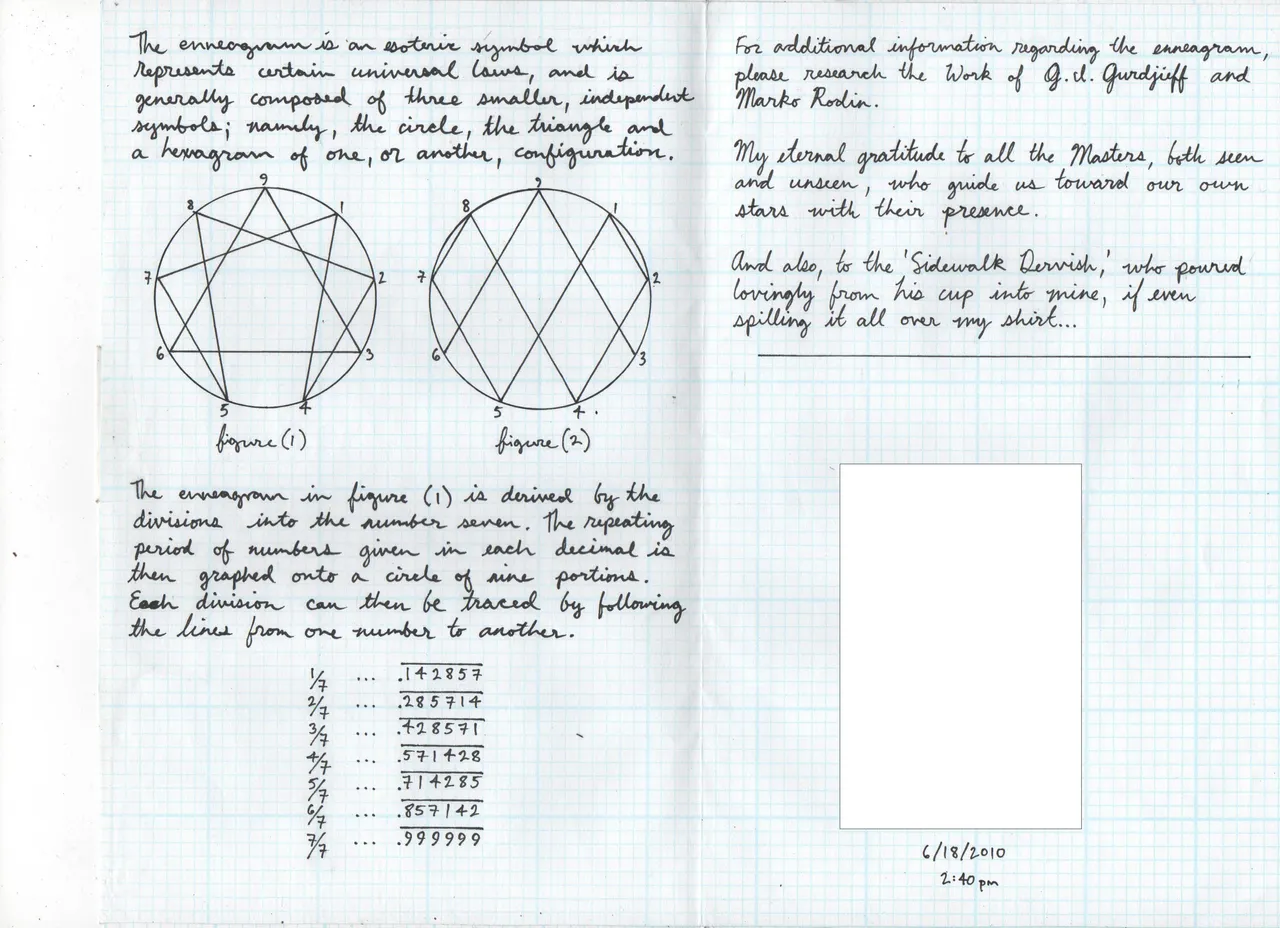 The enneagram is an esoteric symbol which
represents certain universal laws, and is
generally composed of three smaller, independent
symbols; namely, the circle, the triangle and
a hexagram of one, or another, configuration.
9
8 1
7 2
6 3
5 4
figure (1)
9
8 1
7 2
6 3
5 4
figure (2)
The enneagram in figure (1) is derived by the
divisions into the number seven. The repeating
period of numbers given in each decimal is
then graphed onto a circle of nine portions.
Each division can then be traced by following
the lines from one number to another.
1/7 ... .142857
2/7 ... .285714
3/7 ... .428571
4/7 ... .571428
5/7 ... .714285
6/7 ... .857142
7/7 ... .999999
For additional information regarding the enneagram,
please research the Work of G.I. Gurdjieff and
Marko Rodin.
My eternal gratitude to all the Masters, both seen
and unseen, who guide us toward our own
stars with their presence.
And also, to the 'Sidewalk Dervish,' who poured
lovingly from his cup into mine, if even
spilling it all over my shirt...
6/18/2010
2:40 pm